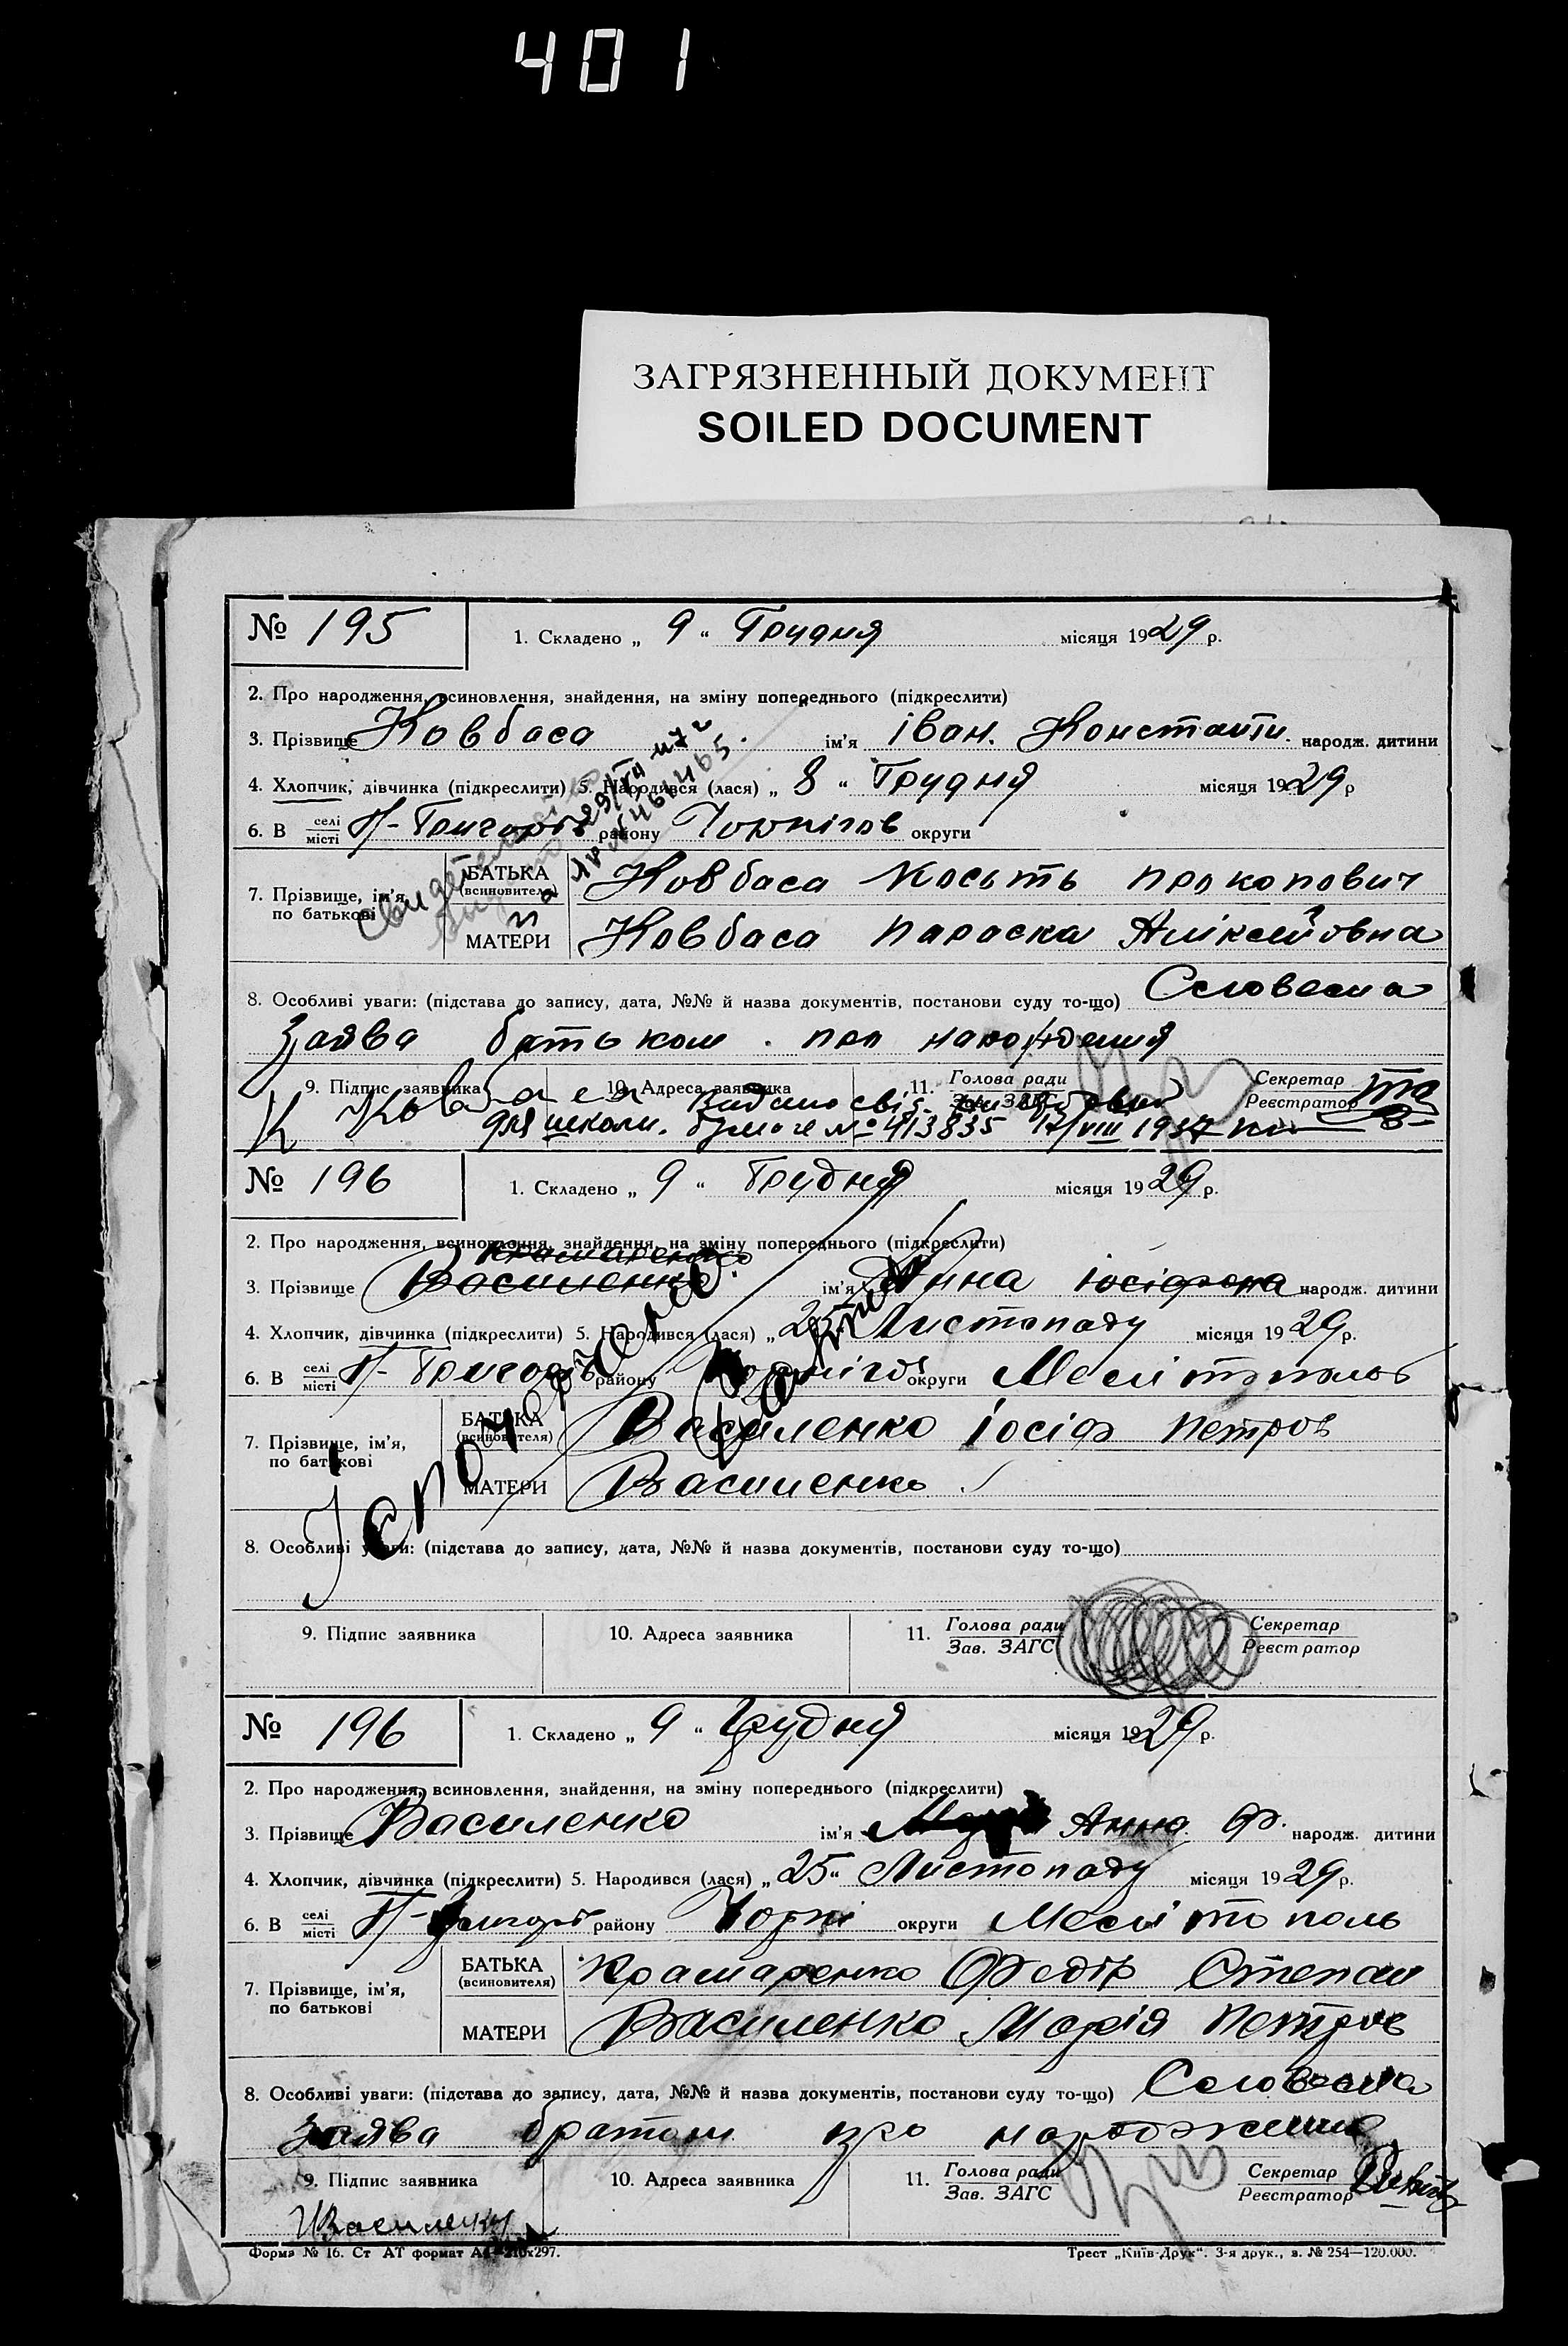 401
ЗАГРЯЗНЕННЫЙ ДОКУМЕНТ
SOILED DOCUMENT
№ 195
1. Складено „ 9 “ Грудня місяця 1929 р.
2. Про народження, всиновлення, знайдення, на зміну попереднього (підкреслити)
3. Прізвище Ковбаса ім'я Іван. Константи. народж. дитини
4. Хлопчик, дівчинка (підкреслити) 5. Народився (лася) „ 8 “ Грудня місяця 1929 р
6. В селі місті П-Григорів району Чорнігов округи
7. Прізвище, ім'я, по батькові
БАТЬКА (всиновителя) Ковбаса Кость Прокопович
МАТЕРИ Ковбаса Параска Аліксеївна
8. Особливі уваги: (підстава до запису, дата, №№ й назва документів, постанови суду то-що) Словесна
Заява батьком про народження
9. Підпис заявника 10. Адреса заявника 11. Голова ради Зав. ЗАГС Секретар Реєстратор
К Ковбаса Видано свід.
для школи. бумаге № 413835 12/VIII 1937
№ 196
1. Складено „ 9 “ Грудня місяця 1929 р.
2. Про народження, всиновлення, знайдення, на зміну попереднього (підкреслити)
Крамаренко
3. Прізвище Василенко ім'я Анна Іосіфовна народж. дитини
4. Хлопчик, дівчинка (підкреслити) 5. Народився (лася) „ 25 “ Листопаду місяця 1929 р.
6. В селі місті П-Григорів району Чорнігов округи Мелітополь
7. Прізвище, ім'я, по батькові
БАТЬКА (всиновителя) Василенко Іосіф Петров
МАТЕРИ Василенко
8. Особливі уваги: (підстава до запису, дата, №№ й назва документів, постанови суду то-що)
9. Підпис заявника 10. Адреса заявника 11. Голова ради Зав. ЗАГС Секретар Реєстратор
№ 196
1. Складено „ 9 “ Грудня місяця 1929 р.
2. Про народження, всиновлення, знайдення, на зміну попереднього (підкреслити)
3. Прізвище Василенко ім'я Анна Ф. народж. дитини
4. Хлопчик, дівчинка (підкреслити) 5. Народився (лася) „ 25 “ Листопаду місяця 1929 р.
6. В селі місті П-Григорів району Чорні округи Мелітополь
7. Прізвище, ім'я, по батькові
БАТЬКА (всиновителя) Крамаренко Федір Степан
МАТЕРИ Василенко Марія Петров
8. Особливі уваги: (підстава до запису, дата, №№ й назва документів, постанови суду то-що) Словесна
заява братом про народження
9. Підпис заявника 10. Адреса заявника 11. Голова ради Зав. ЗАГС Секретар Реєстратор
Василенко
Форма № 16. Ст АТ формат А4—210х297.
Трест „Київ-Друк“. 3-я друк., з. № 254—120.000.